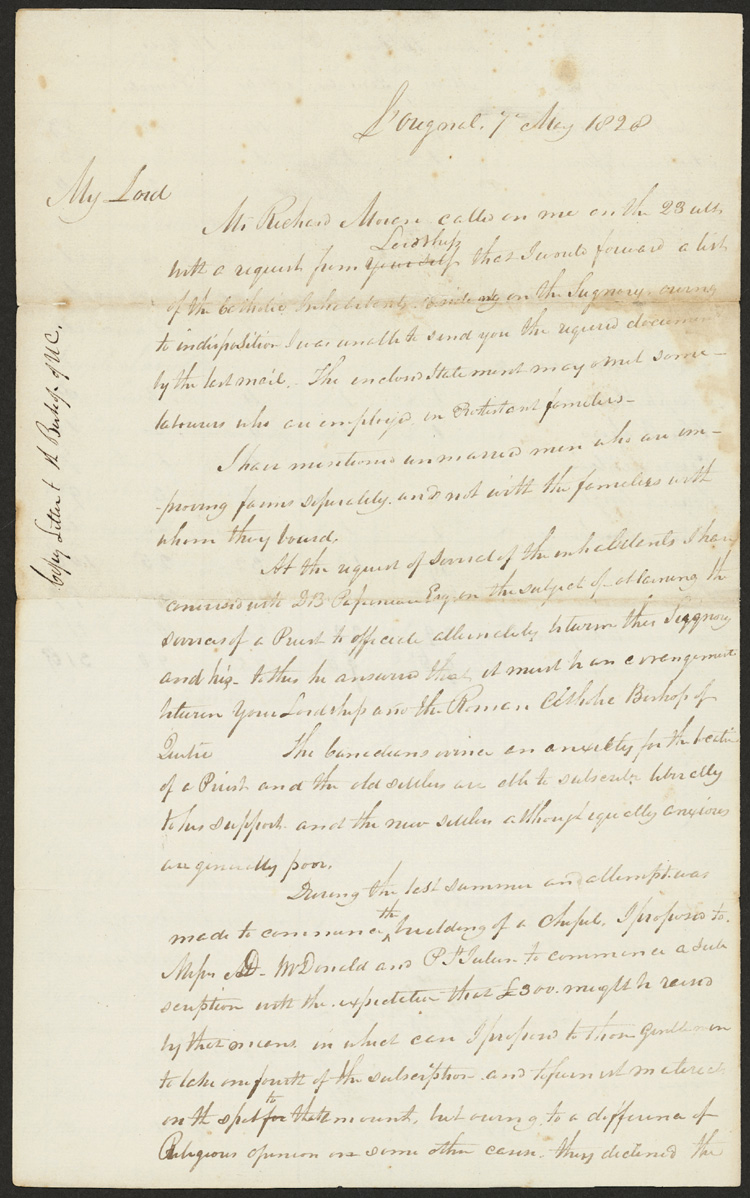 L'orignal. 7th May 1828
My Lord
Mr Richard Moran called on me on the 23 ult
with a request from Your self Lordship that I would forward a list
of the Catholic Inhabitants residing on the Signory. owing
to indisposition I was unable to send you the required document
by the last mail. The enclosed Statement may omit some
labourers who are employed in Protistant families
I have mentioned unmarried men who are im-
-proving farms seperately and not with the families with
whom they board.
At the request of several of the inhabitants I have
conversed with DB Papineau Esq on the subject of obtaining the
services of a Priest to officiate alternately between this Siggnory
and his - to this he answered that it must be an arrangement
between Your Lordship and the Roman Catholic Bishop of
Quebec The Canadians evince an anxiety for the location
of a Priest and the old settlers are able to subscribe liberally
to his support and the new settlers although equally anxious
are generally poor.
During the last summer an attempt was
made to commence the building of a Chapel. I proposed to
Messrs AD. McDonald and P St Julien to commence a sub
scription with the expectation that £300 might be raised
by that means in which case I proposed to those Gentlemen
to take one fourth of the subscription and to furnish materials
on the spot to for that amount, but owing to a difference of
Religious opinion or some other cause. they declined the
Copy Letter to Rt Bishop of U.C.